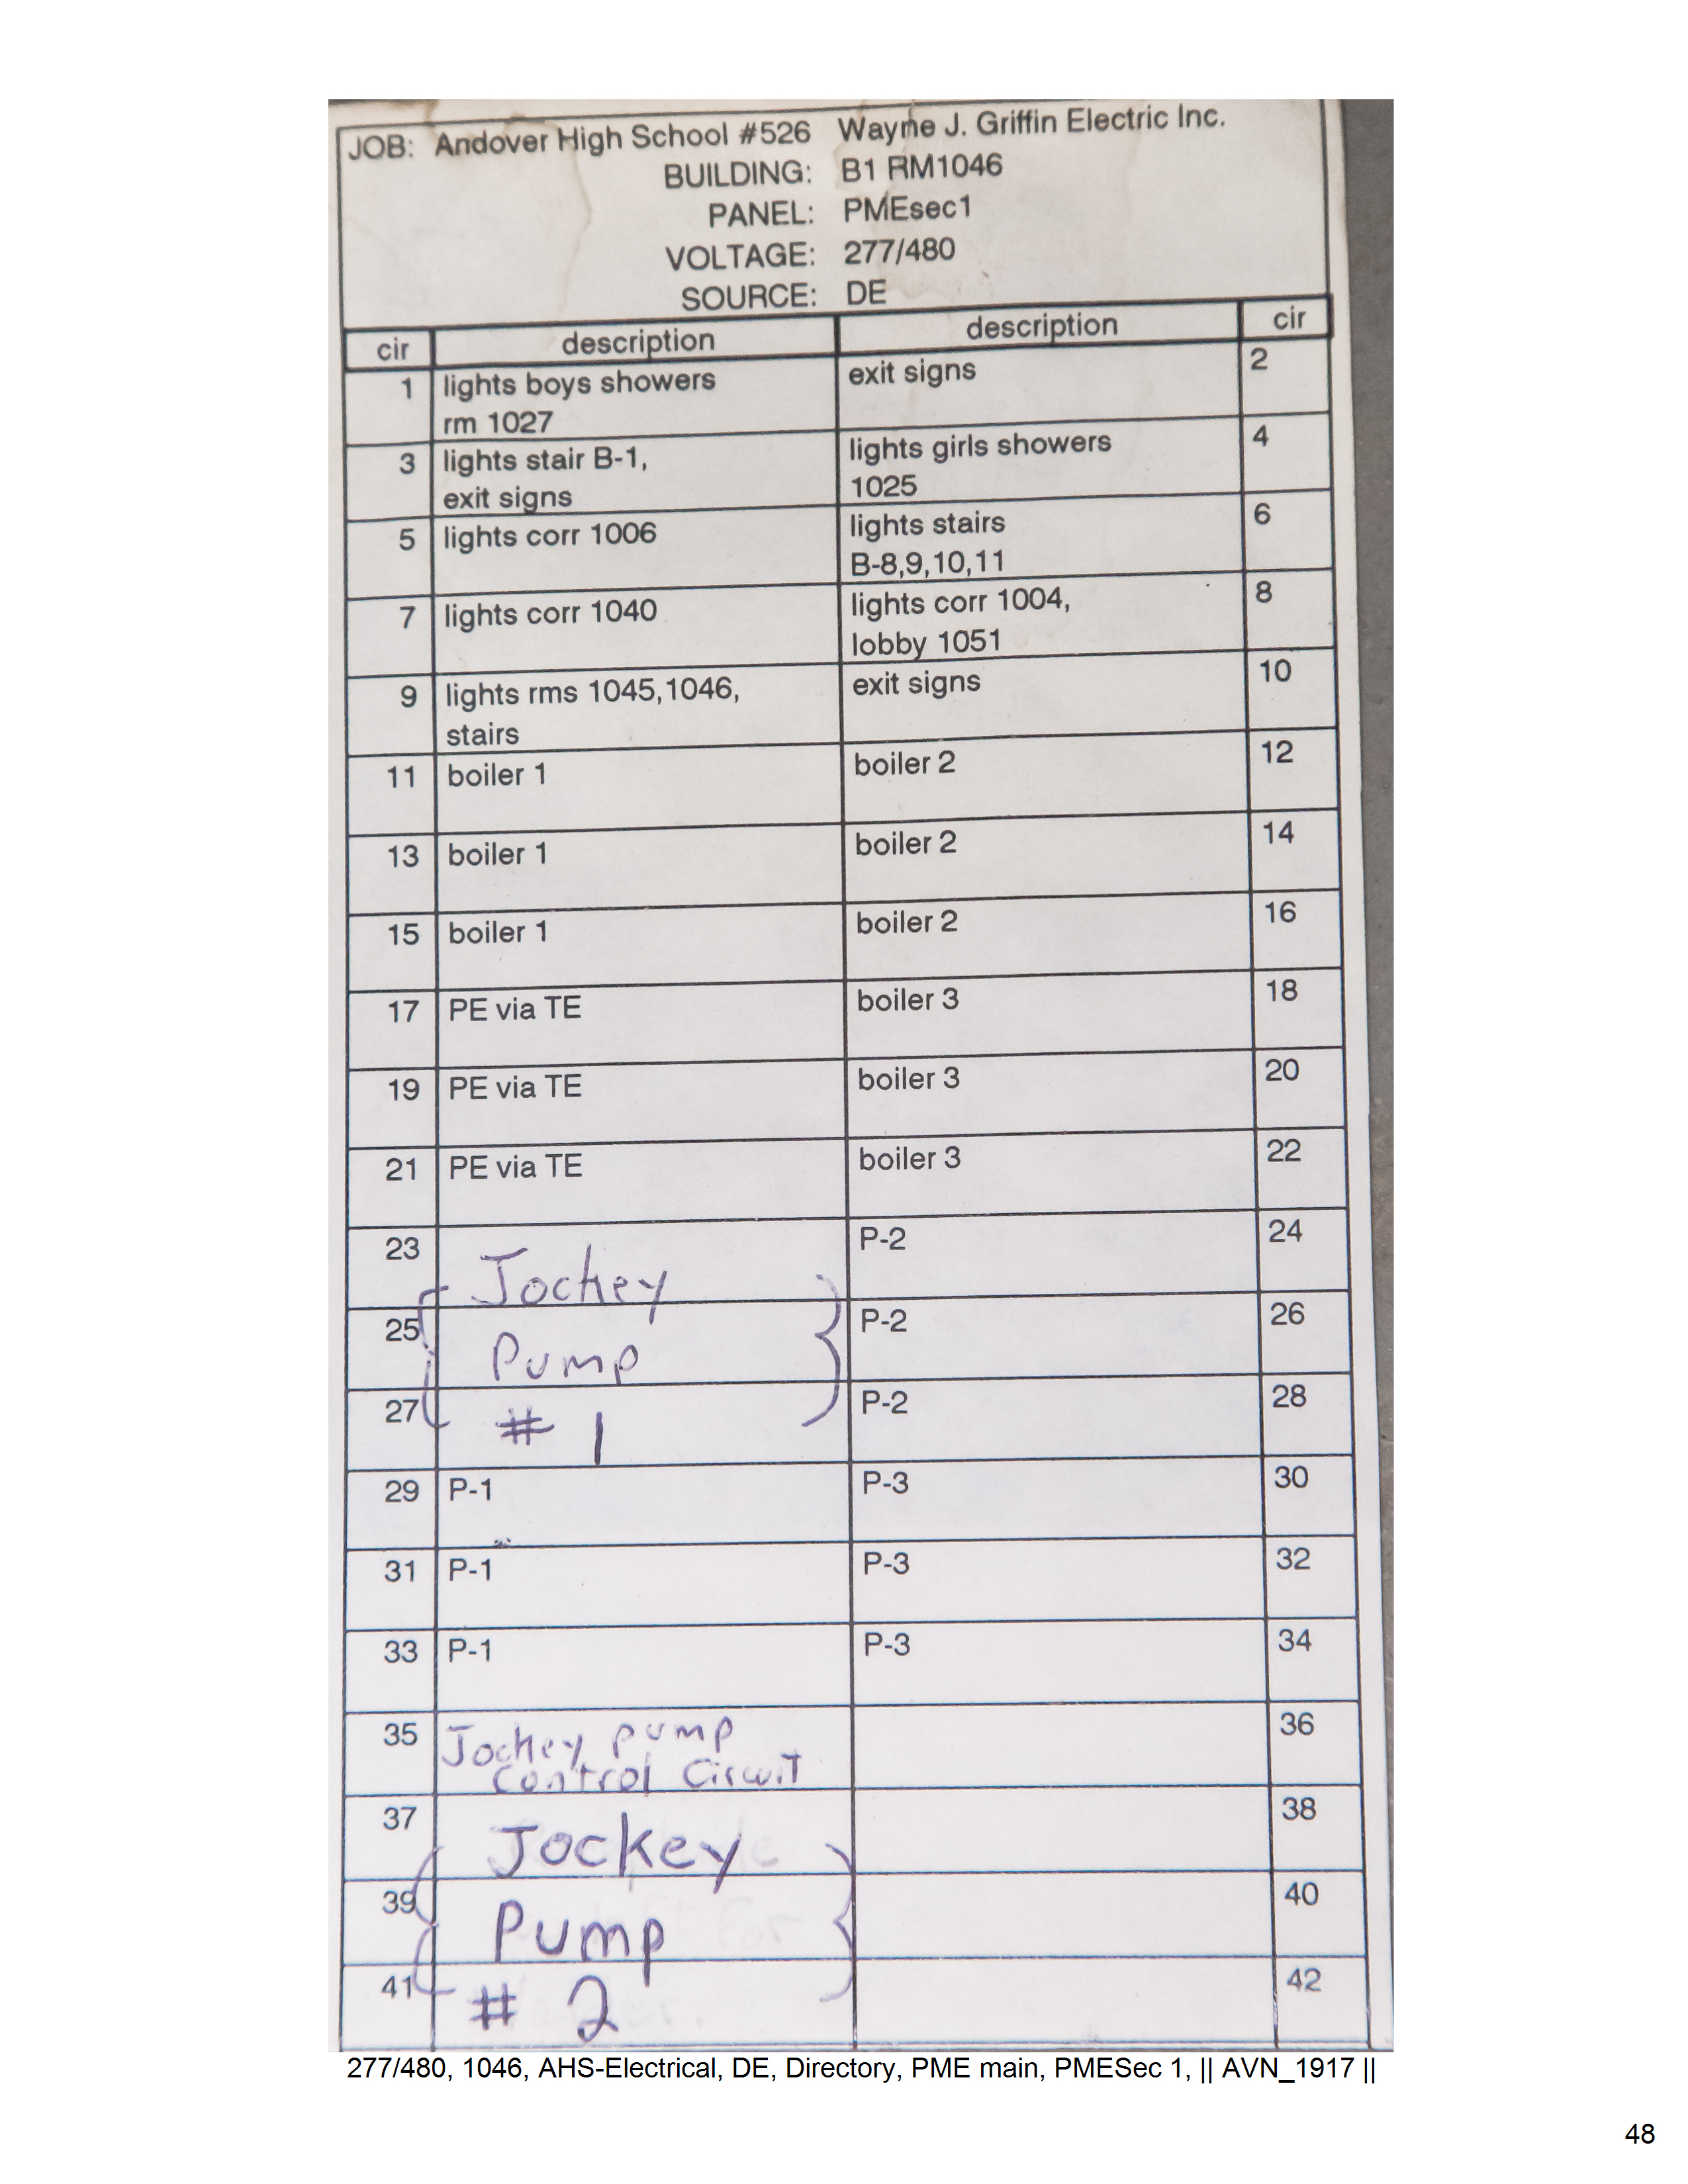 JOB: Andover High School #526 Wayne J. Griffin Electric Inc.
BUILDING: B1 RM1046
PANEL: PMEsec1
VOLTAGE: 277/480
SOURCE: DE
cir description description cir
1 lights boys showers exit signs 2
rm 1027
3 lights stair B-1, lights girls showers 4
exit signs 1025
5 lights corr 1006 lights stairs 6
B-8,9,10,11
7 lights corr 1040 lights corr 1004, 8
lobby 1051
9 lights rms 1045,1046, exit signs 10
stairs
11 boiler 1 boiler 2 12
13 boiler 1 boiler 2 14
15 boiler 1 boiler 2 16
17 PE via TE boiler 3 18
19 PE via TE boiler 3 20
21 PE via TE boiler 3 22
23 Jockey P-2 24
25 Pump P-2 26
27 # 1 P-2 28
29 P-1 P-3 30
31 P-1 P-3 32
33 P-1 P-3 34
35 Jockey pump 36
control circuit
37 Jockey 38
39 Pump 40
41 # 2 42
277/480, 1046, AHS-Electrical, DE, Directory, PME main, PMESec 1, || AVN_1917 ||
48